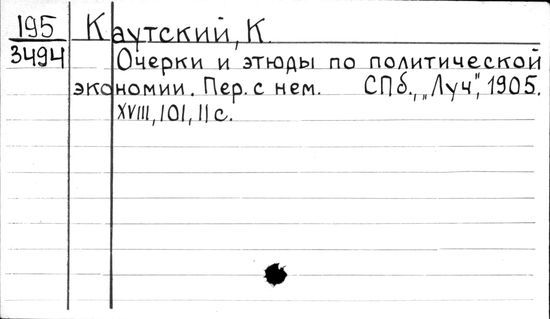 195 Каутский, К.
3494 Очерки и этюды по политической
экономии. Пер. с нем. СПб., „Луч", 1905.
XVIII, 101, 11 с.